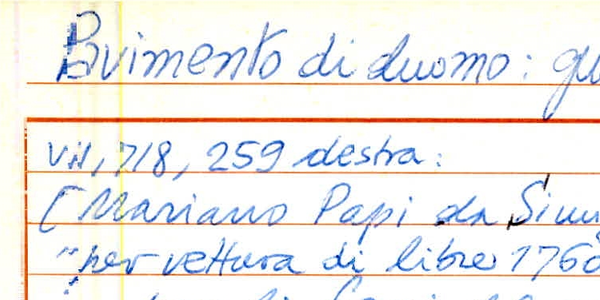 Pavimento di duomo:
VII, 718, 259 destra:
[Mariano Papi da
"per vettura di libre 1760
di